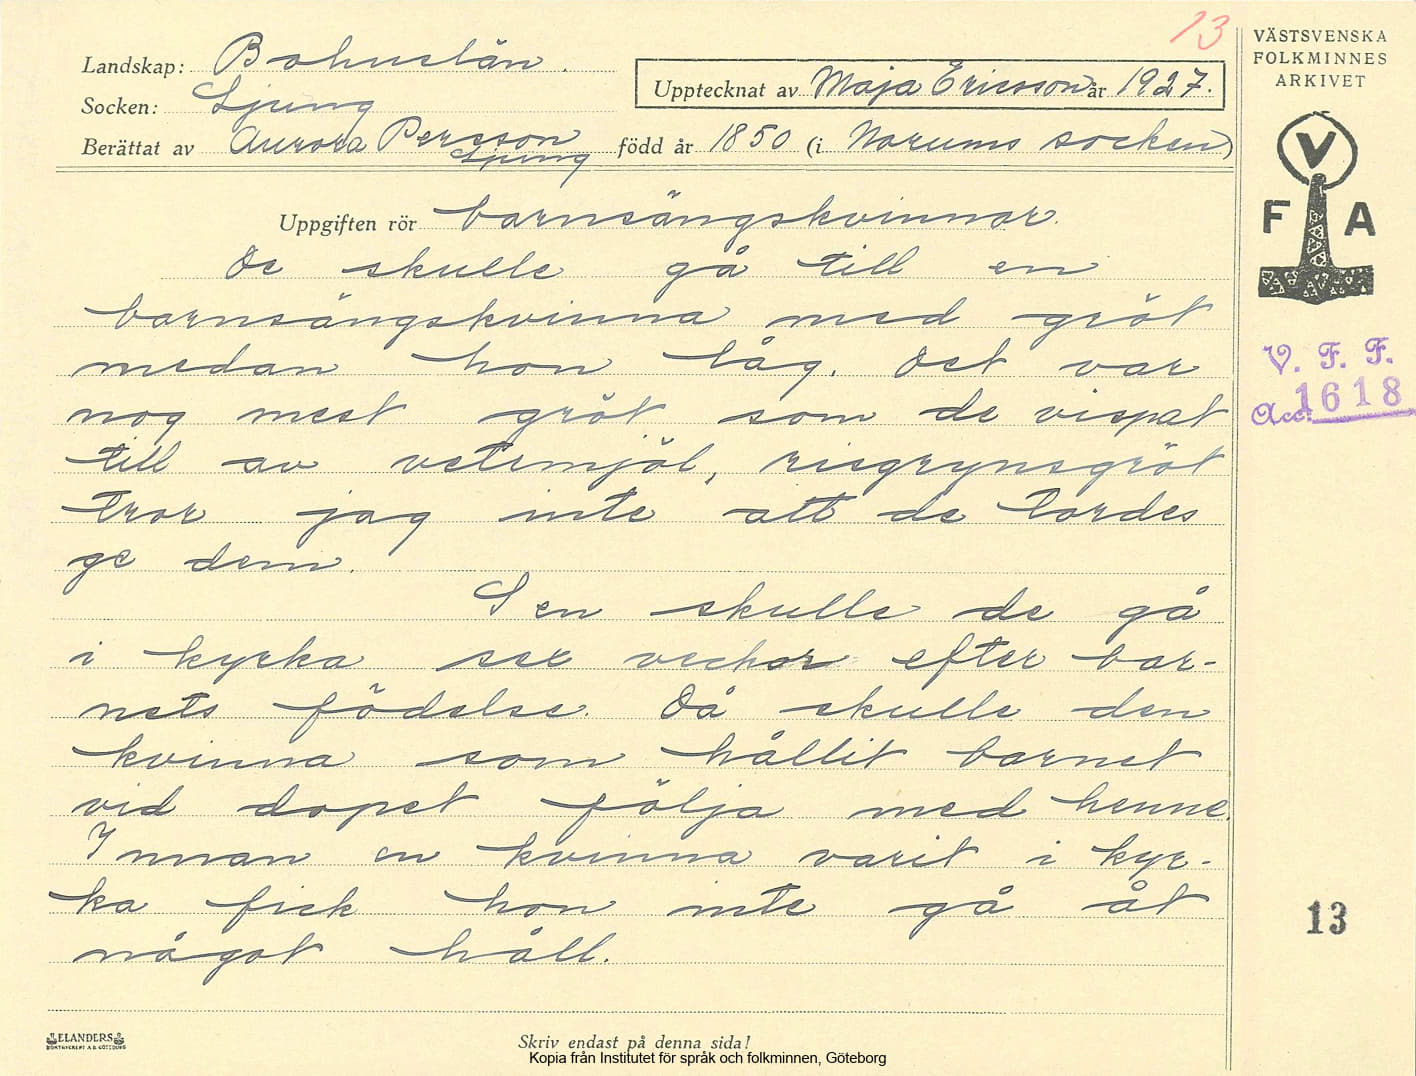 13
Landskap: Bohuslän.
Socken: Ljung
Upptecknat av Maja Ericsson år 1927.
Berättat av Aurora Persson född år 1850 (i Norums socken)
Ljung
Uppgiften rör barnsängskvinnor.
De skulle gå till en
barnsängskvinna med gröt
medan hon låg. Det var
nog mest gröt som de vispat
till av vetemjöl, risgrynsgröt
tror jag inte att de tordes
ge dem.
Sen skulle de gå
i kyrka sex veckor efter bar-
nets födelse. Då skulle den
kvinna som hållit barnet
vid dopet följa med henne.
Innan en kvinna varit i kyr-
ka fick hon inte gå åt
något håll.
ELANDERS
BOKTRYCKERI A.B. GÖTEBORG
Skriv endast på denna sida!
Kopia från Institutet för språk och folkminnen, Göteborg
VÄSTSVENSKA
FOLKMINNES
ARKIVET
V
F A
V. F. F.
Acc. 1618
13